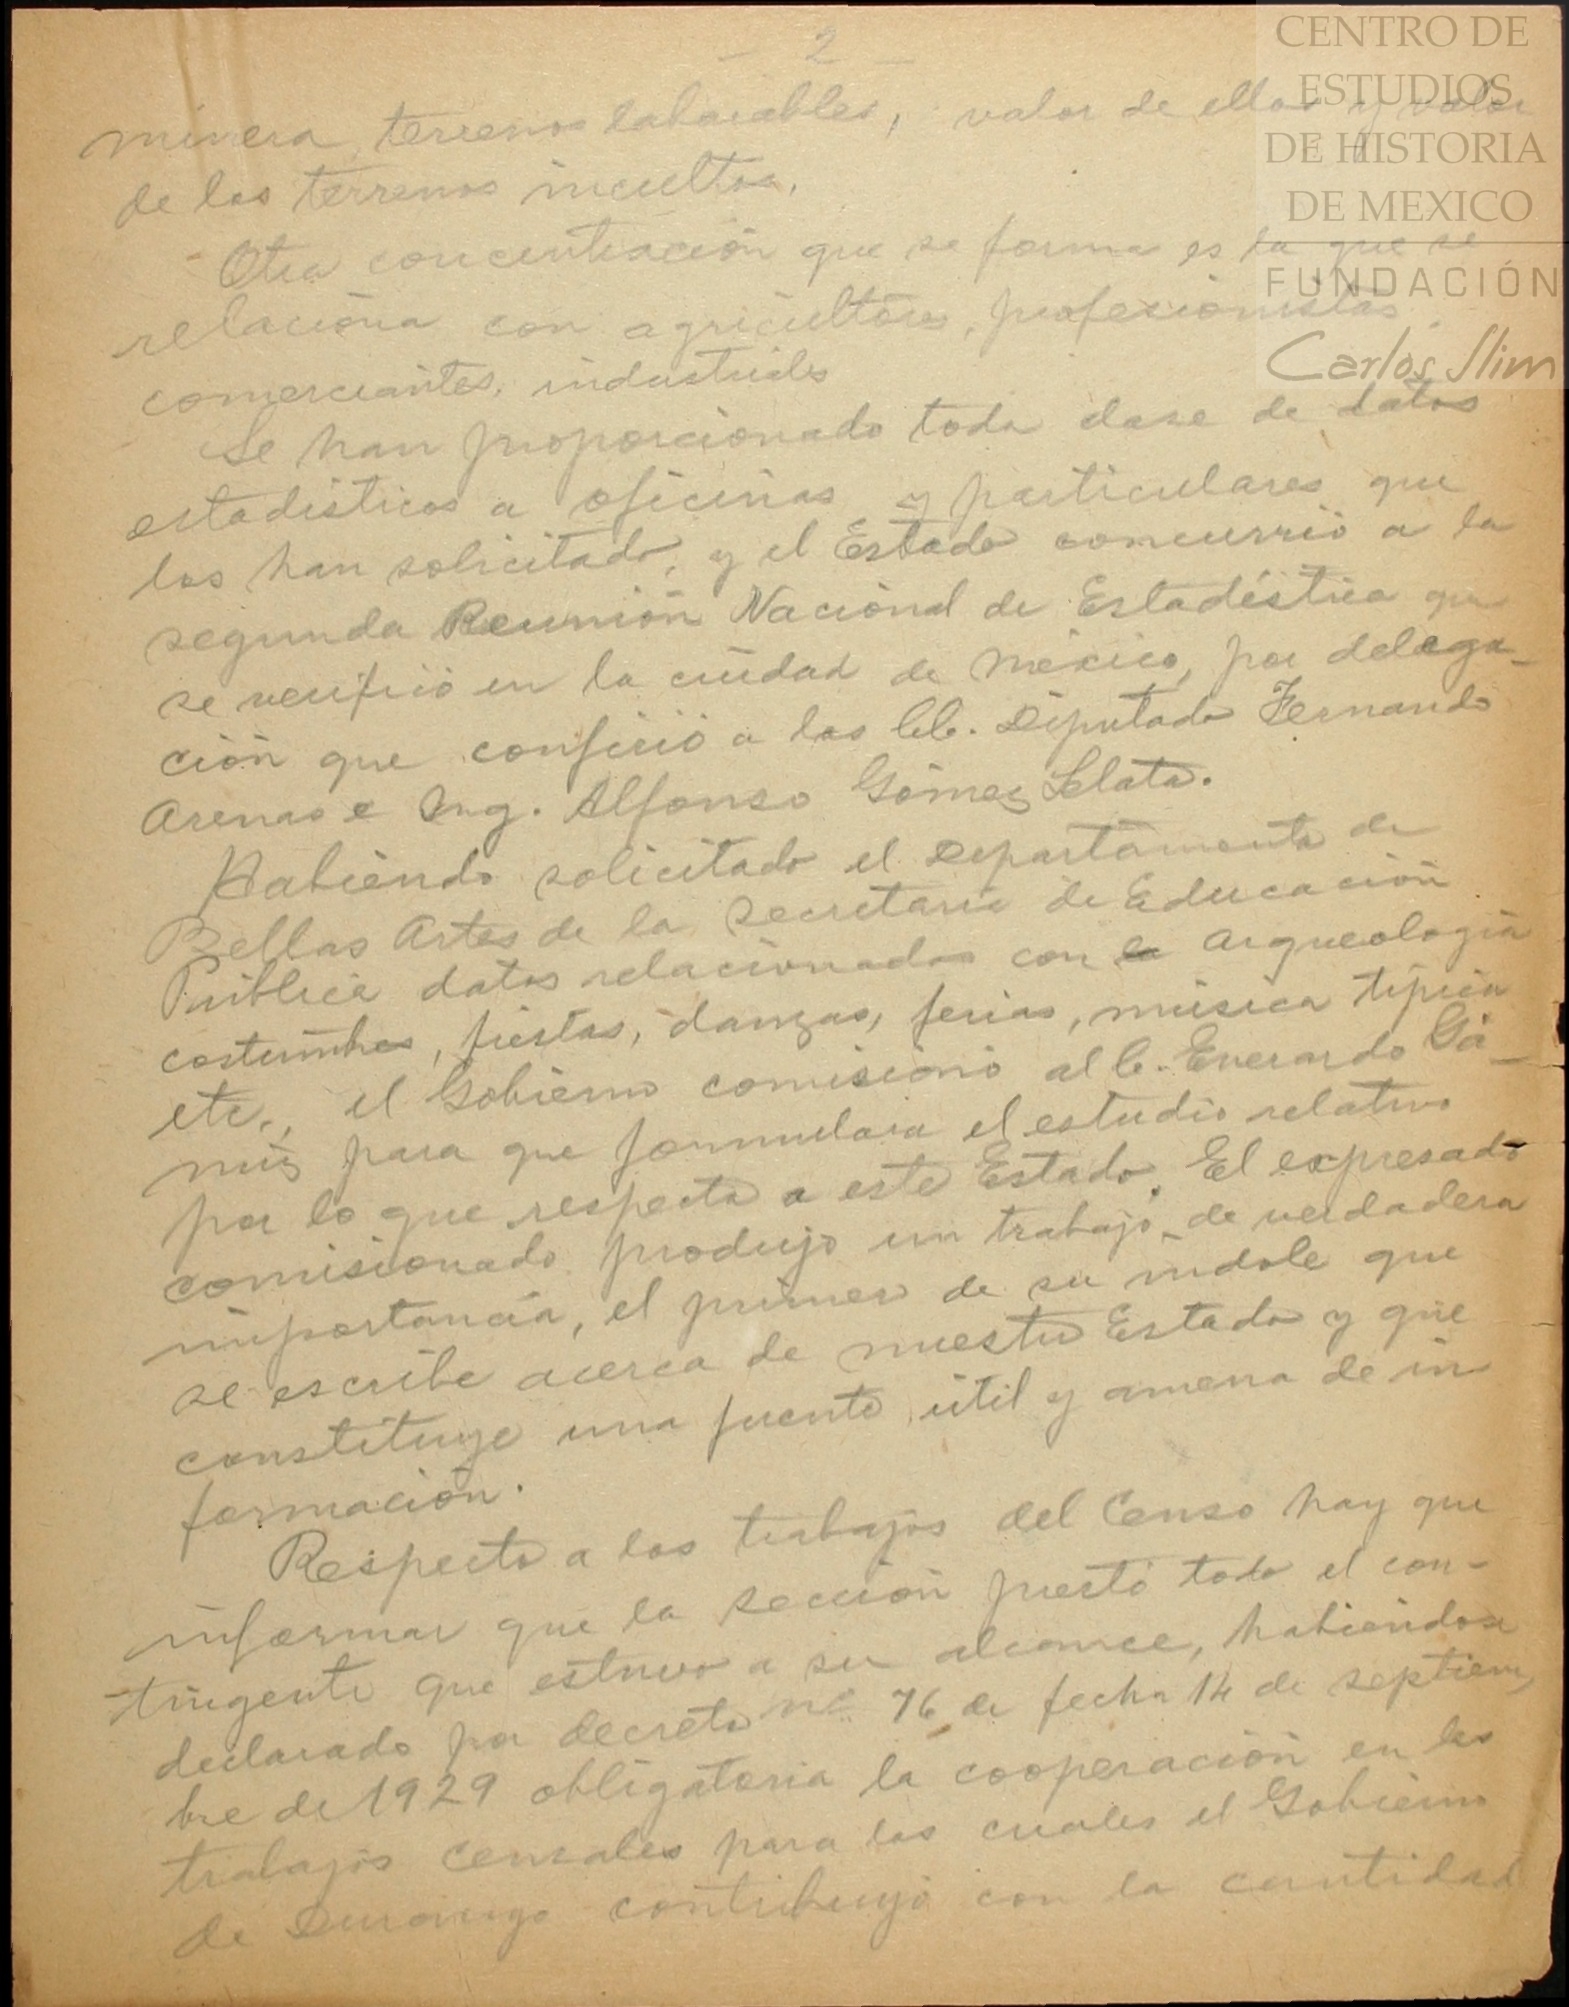 - 2 -
CENTRO DE
ESTUDIOS
DE HISTORIA
DE MEXICO
FUNDACIÓN
Carlos Slim
minera, terrenos laborables, valor de ellos y valor
de los terrenos incultos.
Otra concentración que se forma es la que se
relaciona con agricultores, profesionistas,
comerciantes, industriales
Se han proporcionado toda clase de datos
estadísticos a oficinas y particulares que
los han solicitado, y el Estado concurrió a la
segunda Reunión Nacional de Estadística que
se verificó en la ciudad de México, por delega-
ción que confirió a los CC. Diputado Fernando
Arenas e Ing. Alfonso Gómez
Habiendo solicitado el Departamento de
Bellas Artes de la Secretaría de Educación
Pública datos relacionados con la Arqueología
costumbres, fiestas, danzas, ferias, música típica
etc., el Gobierno comisionó al C. Everardo Gá-
miz para que formulara el estudio relativo
por lo que respecta a este Estado. El expresado
comisionado produjo un trabajo de verdadera
importancia, el primero de su índole que
se escribe acerca de nuestro Estado y que
constituye una fuente útil y amena de in
formación.
Respecto a los trabajos del Censo hay que
informar que la Sección prestó todo el con-
tingente que estuvo a su alcance, habiéndose
declarado por decreto nº 76 de fecha 14 de septiem
bre de 1929 obligatoria la cooperación en los
trabajos censales para los cuales el Gobierno
de Durango contribuyó con la cantidad